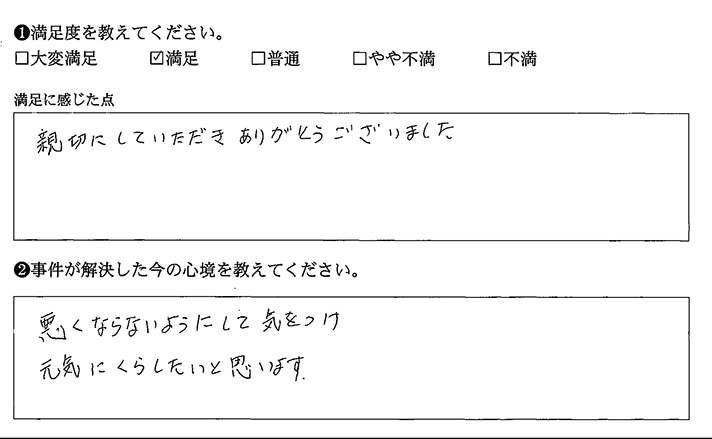 ❶満足度を教えてください。
□大変満足 ☑満足 □普通 □やや不満 □不満
満足に感じた点
親切にしていただき ありがとうございました
❷事件が解決した今の心境を教えてください。
悪くならないようにして 気をつけ
元気にくらしたいと思います。